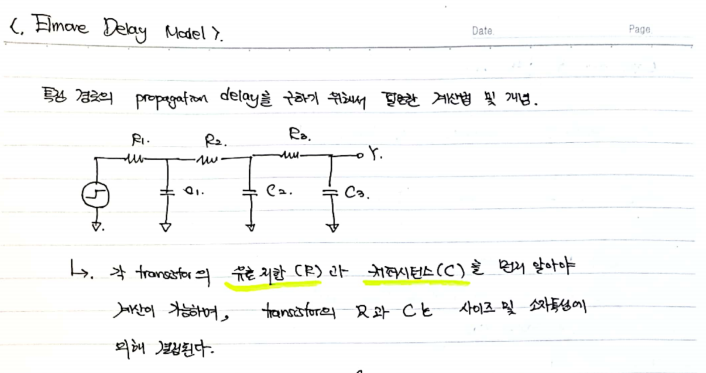 <. Elmore Delay Model >.
Date
Page
특정 경로의 propagation delay을 구하기 위해서 필요한 계산법 및 개념.
R1. R2. R3.
Y.
C1. C2. C3.
↳. 각 transistor의 유효저항 (R)과 커패시턴스(C)를 먼저 알아야
계산이 가능하며, transistor의 R과 C는 사이즈 및 소자특성에
의해 결정된다.